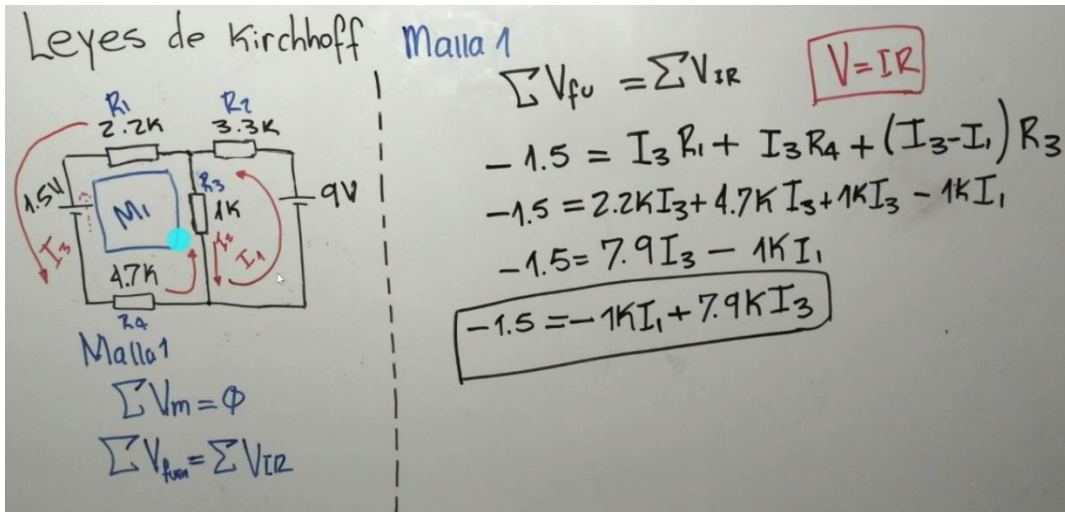 Leyes de Kirchhoff
R1
2.2K
R2
3.3K
1.5V
M1
R3
1K
9V
I3
I2
I1
4.7K
R4
Malla1
ΣVm=Φ
ΣVfuen=ΣVIR
Malla 1
ΣVfu = ΣVIR
V=IR
-1.5 = I3 R1 + I3 R4 + (I3-I1) R3
-1.5 = 2.2K I3 + 4.7K I3 + 1K I3 - 1K I1
-1.5 = 7.9 I3 - 1K I1
-1.5 = -1K I1 + 7.9K I3